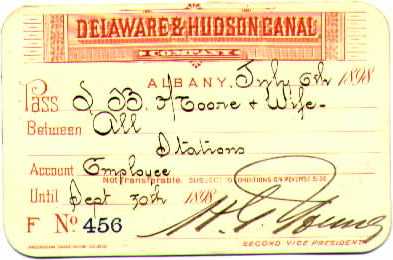 DELAWARE & HUDSON CANAL
COMPANY
ALBANY, July 6th 1898
Pass S. B. Moore & Wife
Between All
Stations
Account Employee
Not Transferable. SUBJECT TO CONDITIONS ON REVERSE SIDE
Until Sept 30th 1898
F No 456
H. G. Young
SECOND VICE PRESIDENT